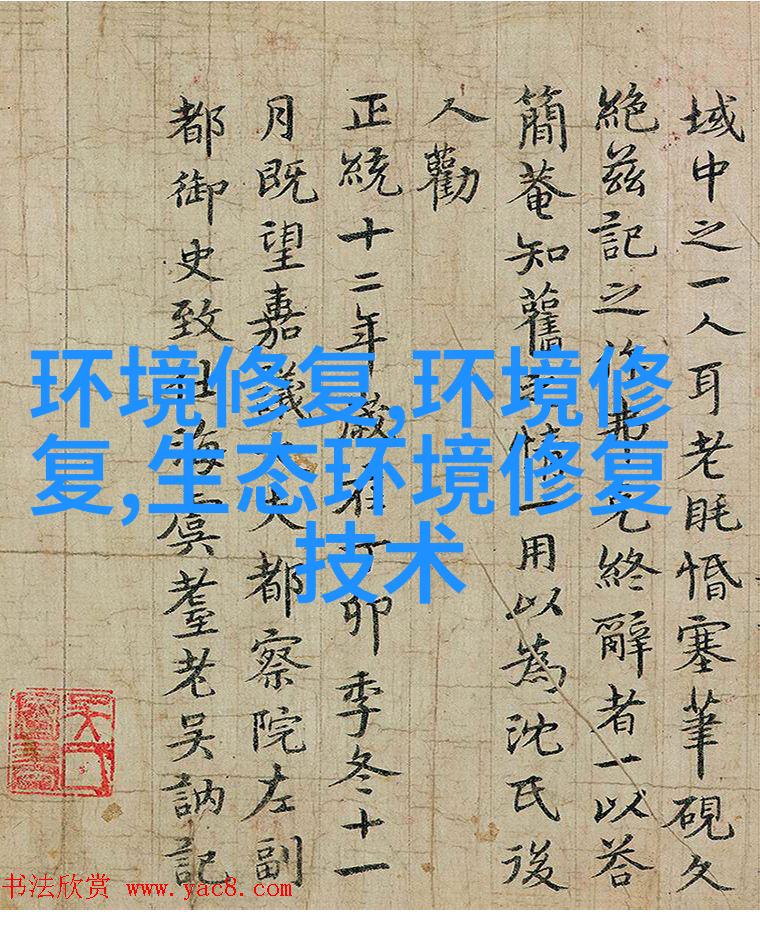 域中之一人耳老眊惛塞筆硯久
絶兹記之
終辭者一以荅
簡菴知舊
一用以為沈氏後
人勸
正統十二年歲在丁卯季冬十一
月既望嘉議大夫都察院左副
都御史致仕海虞耋老吴訥記
环境修复,环境修
复,生态环境修复
技术
书法欣赏 www.yac8.com